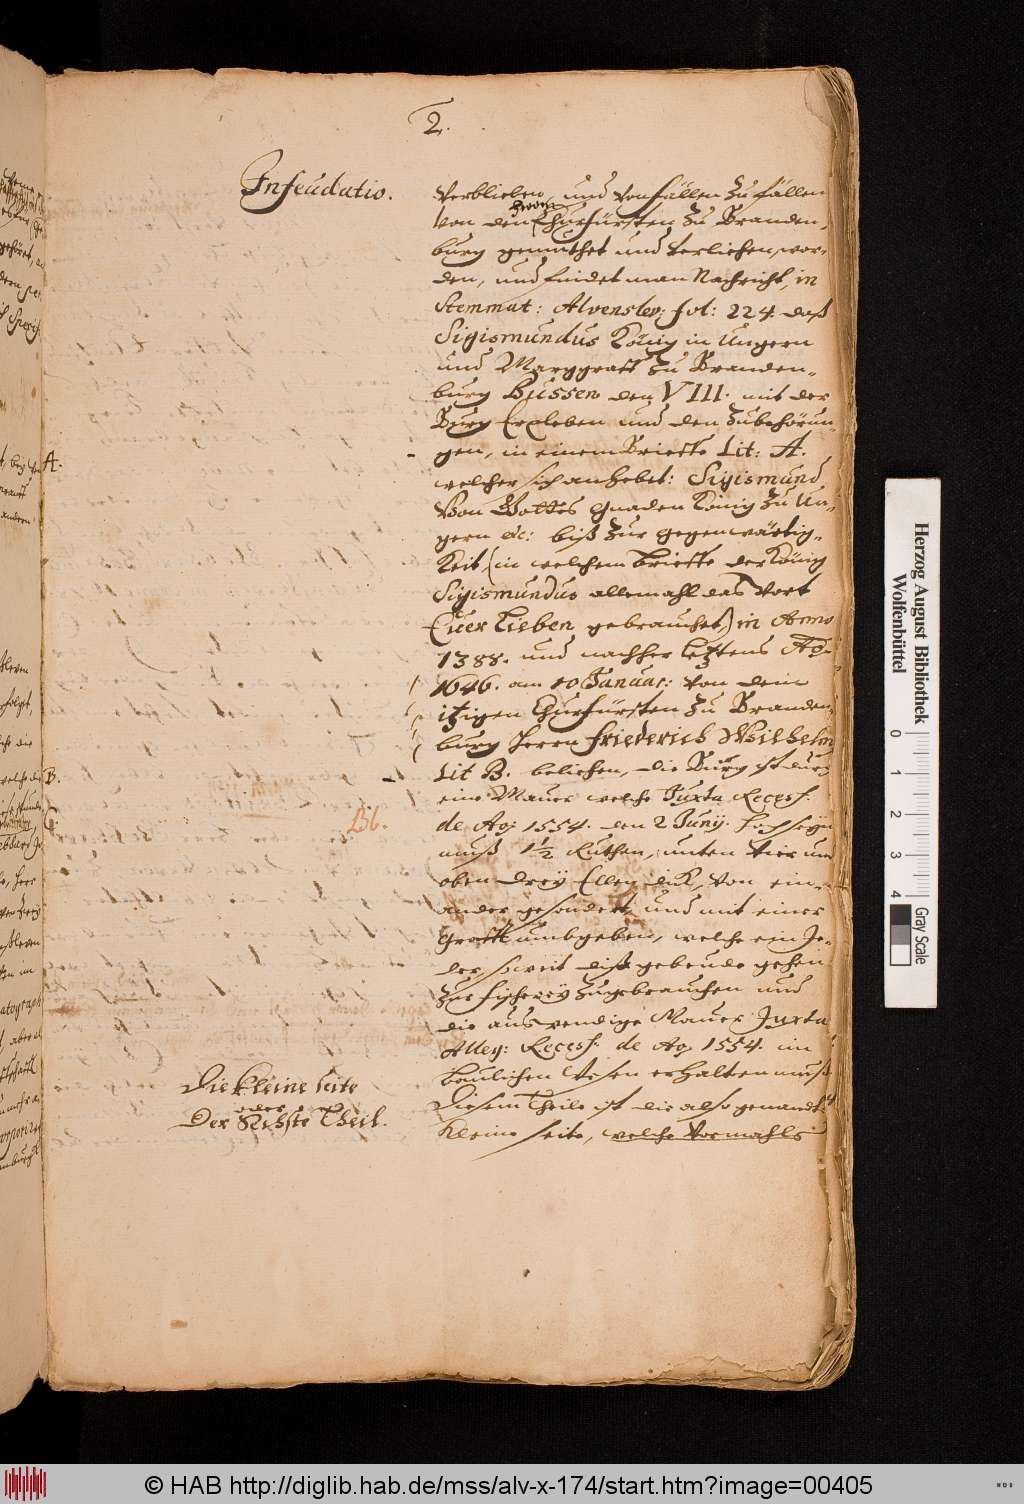 2.
Infeudatio.
Verblieben, und von fällen zu fällen
Von den Herren Churfürsten zu Branden-
burg gemuthet und Verliehen, wor-
den, und findet man Nachricht, in
Stemmat: Alvenslev: fol: 224. daß
Sigismundus König in Ungern
und Marggraff zu Branden-
burg Bussen den VIII. mit der
Burg Erxleben und den Zubehörun-
gen, in einem Brieffe Lit: A.
welcher sich anhebet: Sigismund
Von Gottes Gnaden König zu Un-
gern &c: biß zur gegenwärtig-
keit (in welchem brieffe der König
Sigismundus allemahl das Wort
Euer Lieben gebrauchet) in Anno
1388. und nachher letztens Ao
1646. am 10 Januar: von dem
itzigen Churfürsten zu Branden-
burg Herrn Friederich Wilhelm
Lit B. beliehen, die Burg ist durch
eine Mauer welche Juxta Recess.
de Ao 1554. den 2 Juny.
muß 1½ Ruthen, unten Vier und
oben drey Ellen dick, von ein-
ander gesondert, und mit einer
Grafft umbgeben, welche ein Je-
der, soweit diße gebeude gehen
zur fischerey zugebrauchen und
die auswendige Mauer Juxta
Alleg: Recess. de Ao 1554. im
baulichen Wesen erhalten muß
Diesem Theile ist die also genandte
kleine seite, welche Vormahls
Bb.
Die kleine seite
oder
Der Sechste Theil.
A.
B.
C.
Herzog August Bibliothek
Wolfenbüttel
0 1 2 3 4
Gray Scale
© HAB http://diglib.hab.de/mss/alv-x-174/start.htm?image=00405